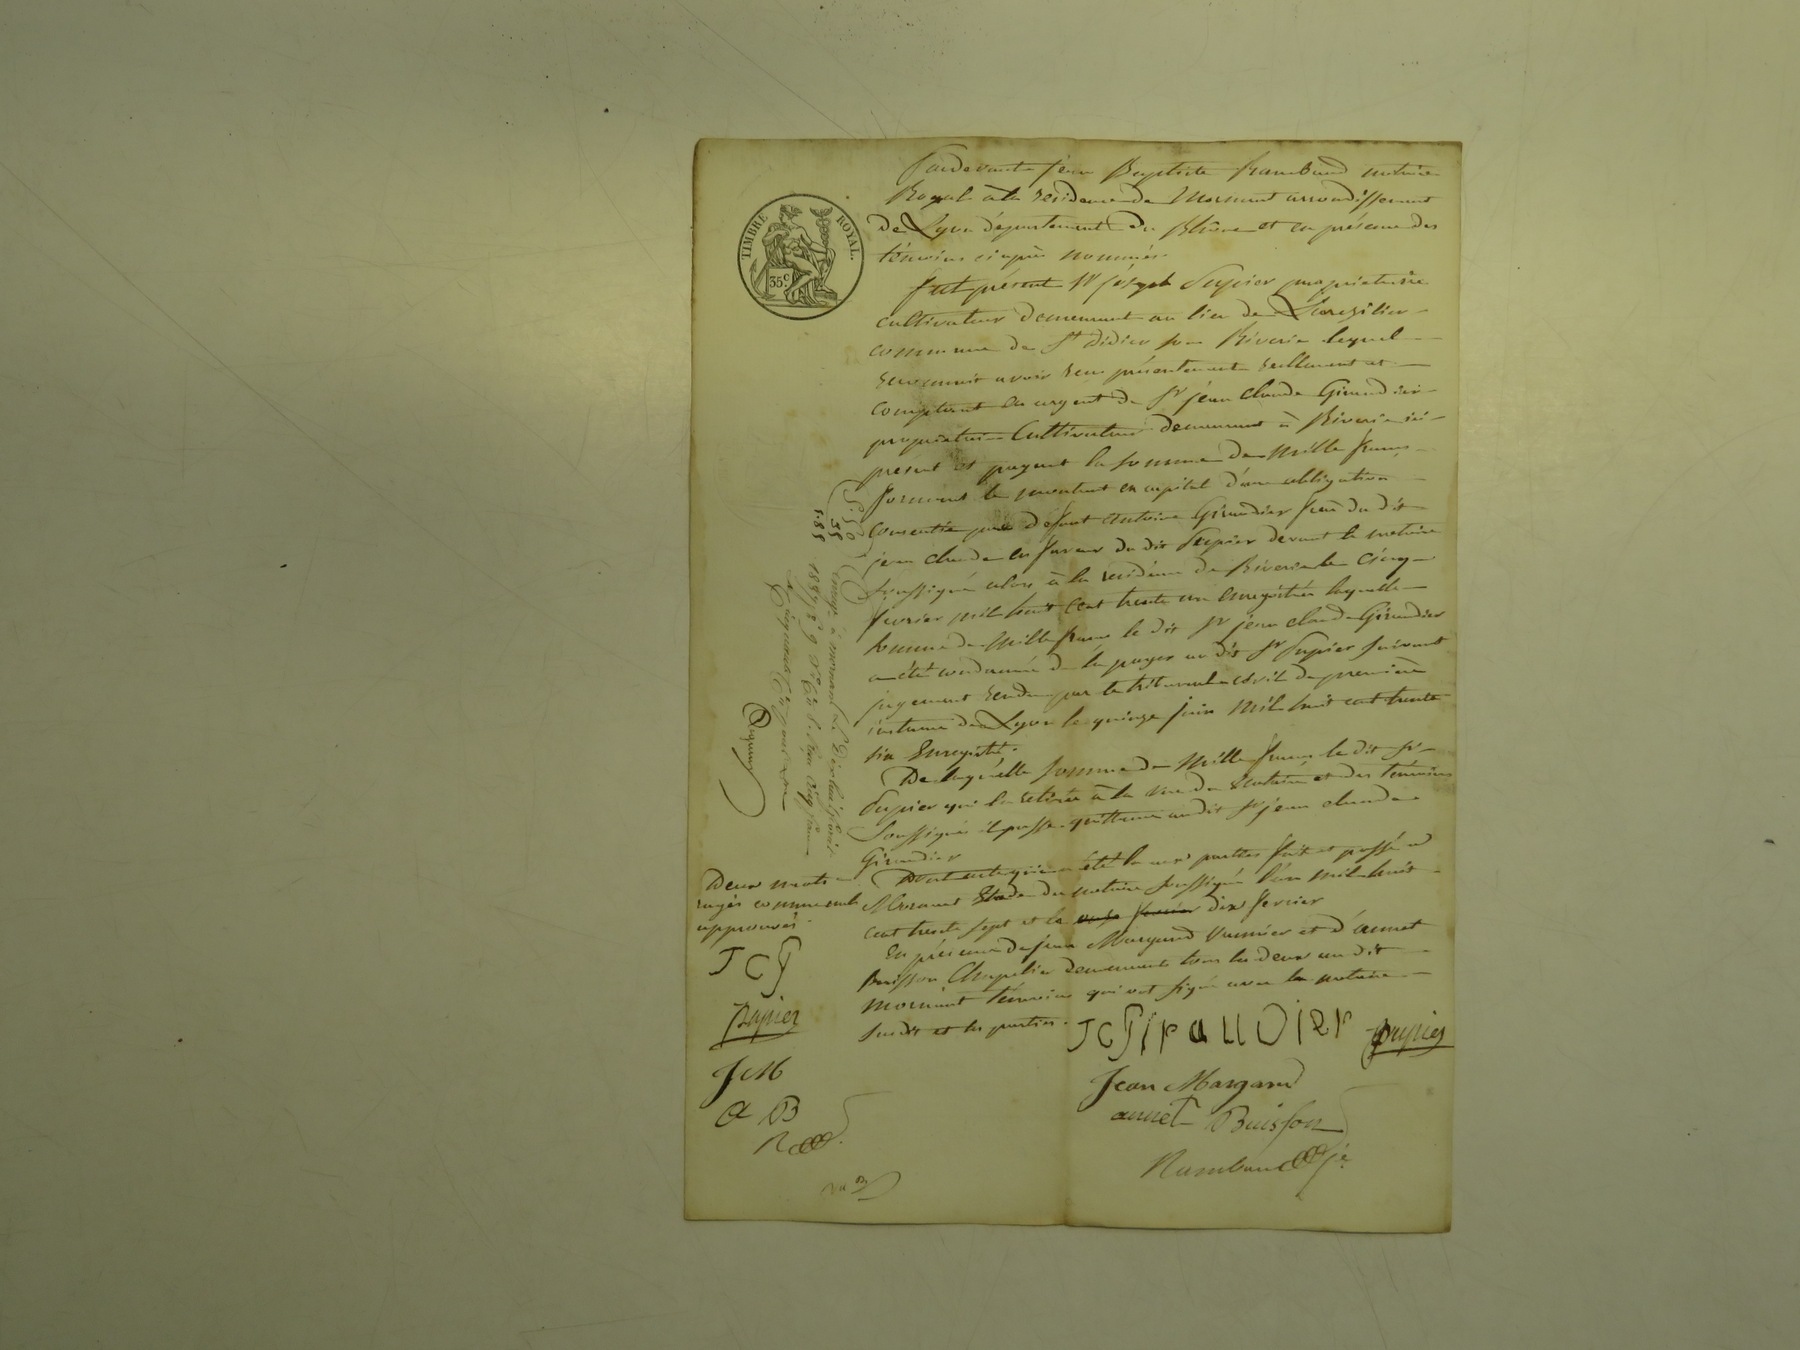 TIMBRE ROYAL.
35 c.
Pardevant jean Baptiste Rambaud notaire
Royal à la résidence de Mornant arrondissement
De Lyon département du Rhône et en présence des
témoins ci après nommés.
fut présent Sr joseph Pupier propriétaire
cultivateur demeurant au lieu de
commune de St Didier sous Riverie lequel
reconnait avoir reçu présentement réellement et
comptant en argent de Sr jean claude Giraudier
propriétaire Cultivateur demeurant à Riverie ici
présent et payant la somme de Mille francs
formant le montant en capital d'une obligation
consentie par défunt Antoine Giraudier frère du dit
jean claude en faveur du dit Pupier devant le notaire
soussigné alors à la résidence de Riverie le cinq
février mil huit cent trente un enregistrée laquelle
somme de Mille francs le dit Sr jean claude Giraudier
a été condamné de la payer au dit Sr Pupier suivant
jugement rendu par le tribunal civil de première
instance de Lyon le quinze juin Mil huit cent trente
six Enregistré.
De laquelle somme de Mille francs le dit Sr
Pupier qui l'a retirée à la vue du Notaire et des témoins
soussignés il passe quittance au dit Sr jean claude
Giraudier
Dont acte qui a été lu aux parties fait et passé à
Mornant Etude du notaire soussigné l'an mil huit
cent trente sept et le dix fevrier
En présence de jean Margand et d'annet
Buisson Chapelier demeurants tous les deux au dit
mornant témoins qui ont signé avec le notaire
susdit et les parties.
5.50
55
enreg. à mornant le
1837
reçu cinq francs
Deux mots
rayés comme nuls
approuvés
JCG
Pupier
JM
A B
R
JCG
pupier
Jean Margand
annet Buisson
Rambaud